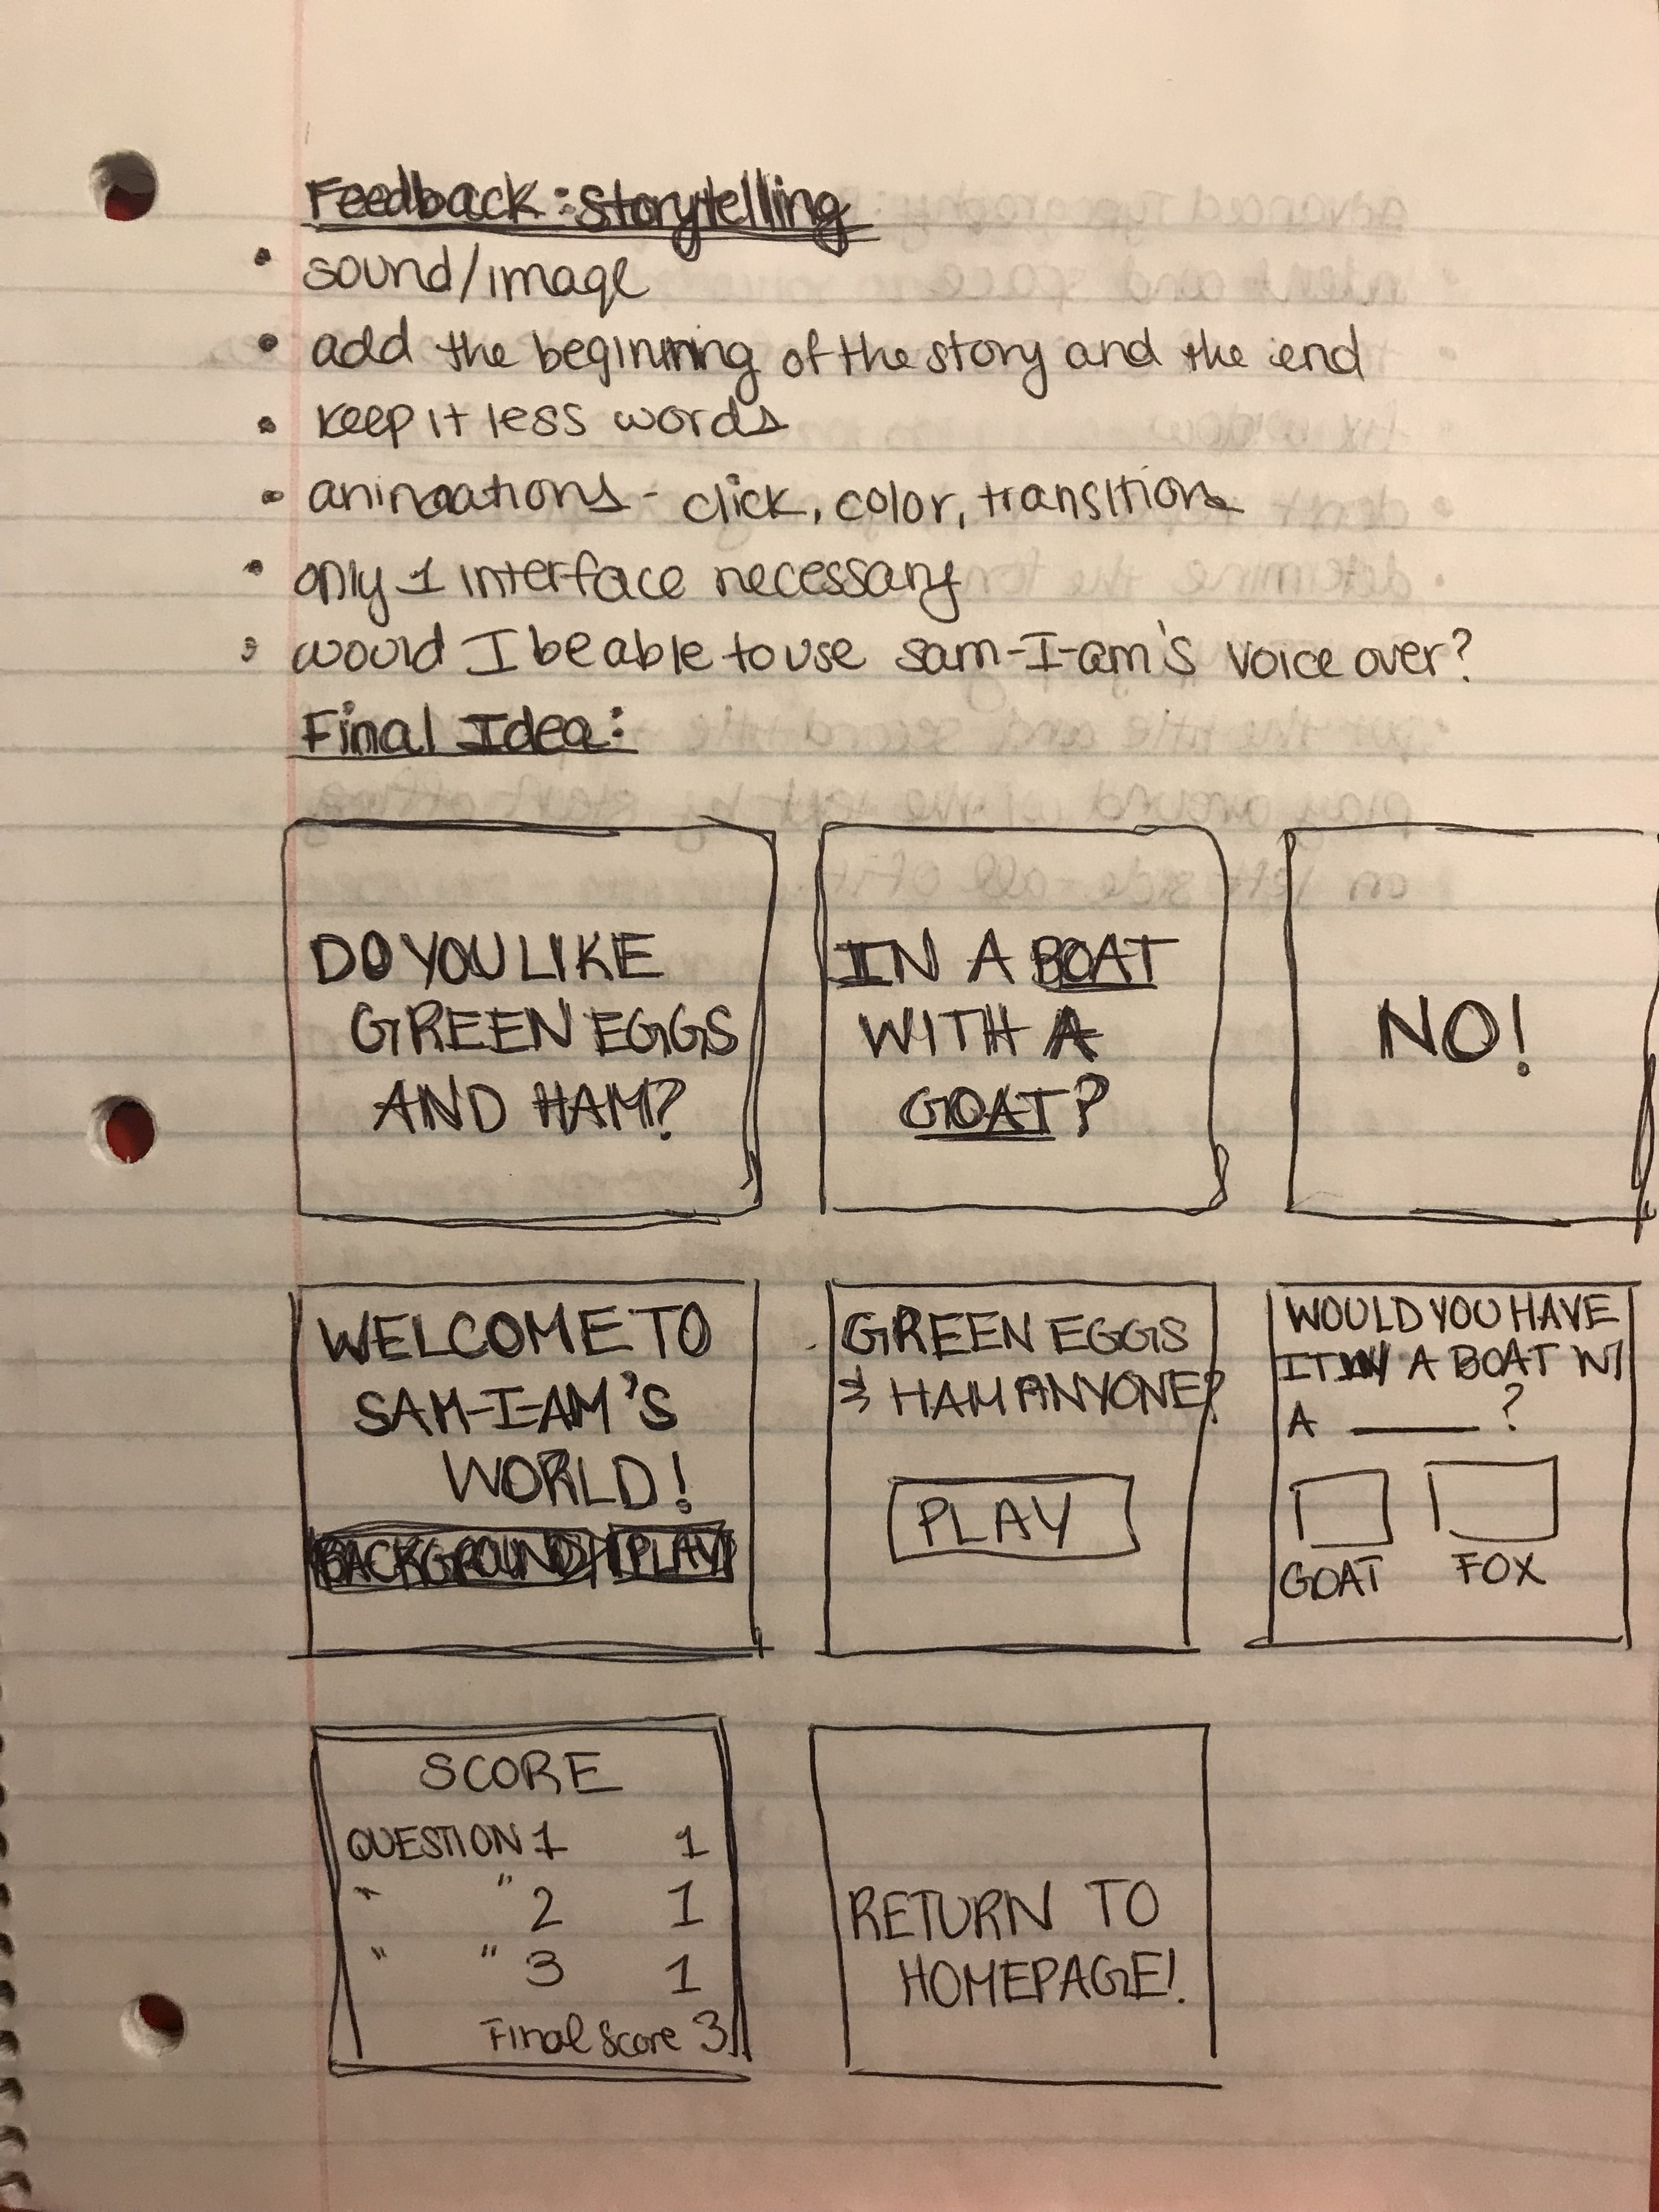 Feedback: Storytelling
• sound/image
• add the beginning of the story and the end
• keep it less words
• animations - click, color, transitions
• only 1 interface necessary
• would I be able to use sam-I-am's voice over?
Final Idea:
DO YOU LIKE
GREEN EGGS
AND HAM?
IN A BOAT
WITH A
GOAT?
NO!
WELCOME TO
SAM-I-AM'S
WORLD!
BACKGROUND PLAY
GREEN EGGS
& HAM ANYONE?
PLAY
WOULD YOU HAVE
IT IN A BOAT W/
A ____ ?
GOAT FOX
SCORE
QUESTION 1 1
" " 2 1
" " 3 1
Final Score 3
RETURN TO
HOMEPAGE!